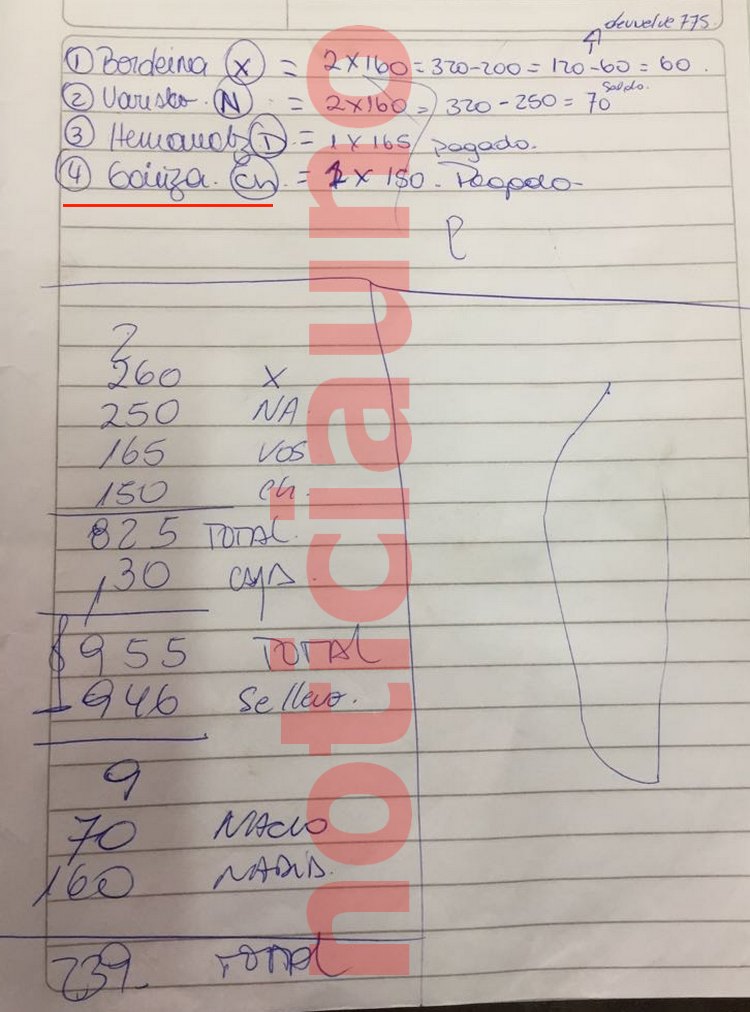 devuelve 775.
① Bordeira (X) = 2x160 = 320-200 = 120-60 = 60.
② Varisko. (N) = 2x160 = 320-250 = 70 saldo.
③ Hernandz (T) = 1x165 pagado.
④ Gainza. (Ch) = 1x150.
260 X
250 NA
165 VOS
150 Ch.
825 TOTAL.
130 CAJA.
$955 TOTAL
-946 Se llevo.
9
70 NACHO
160 NADIA.
239. TOTAL
noticiauno